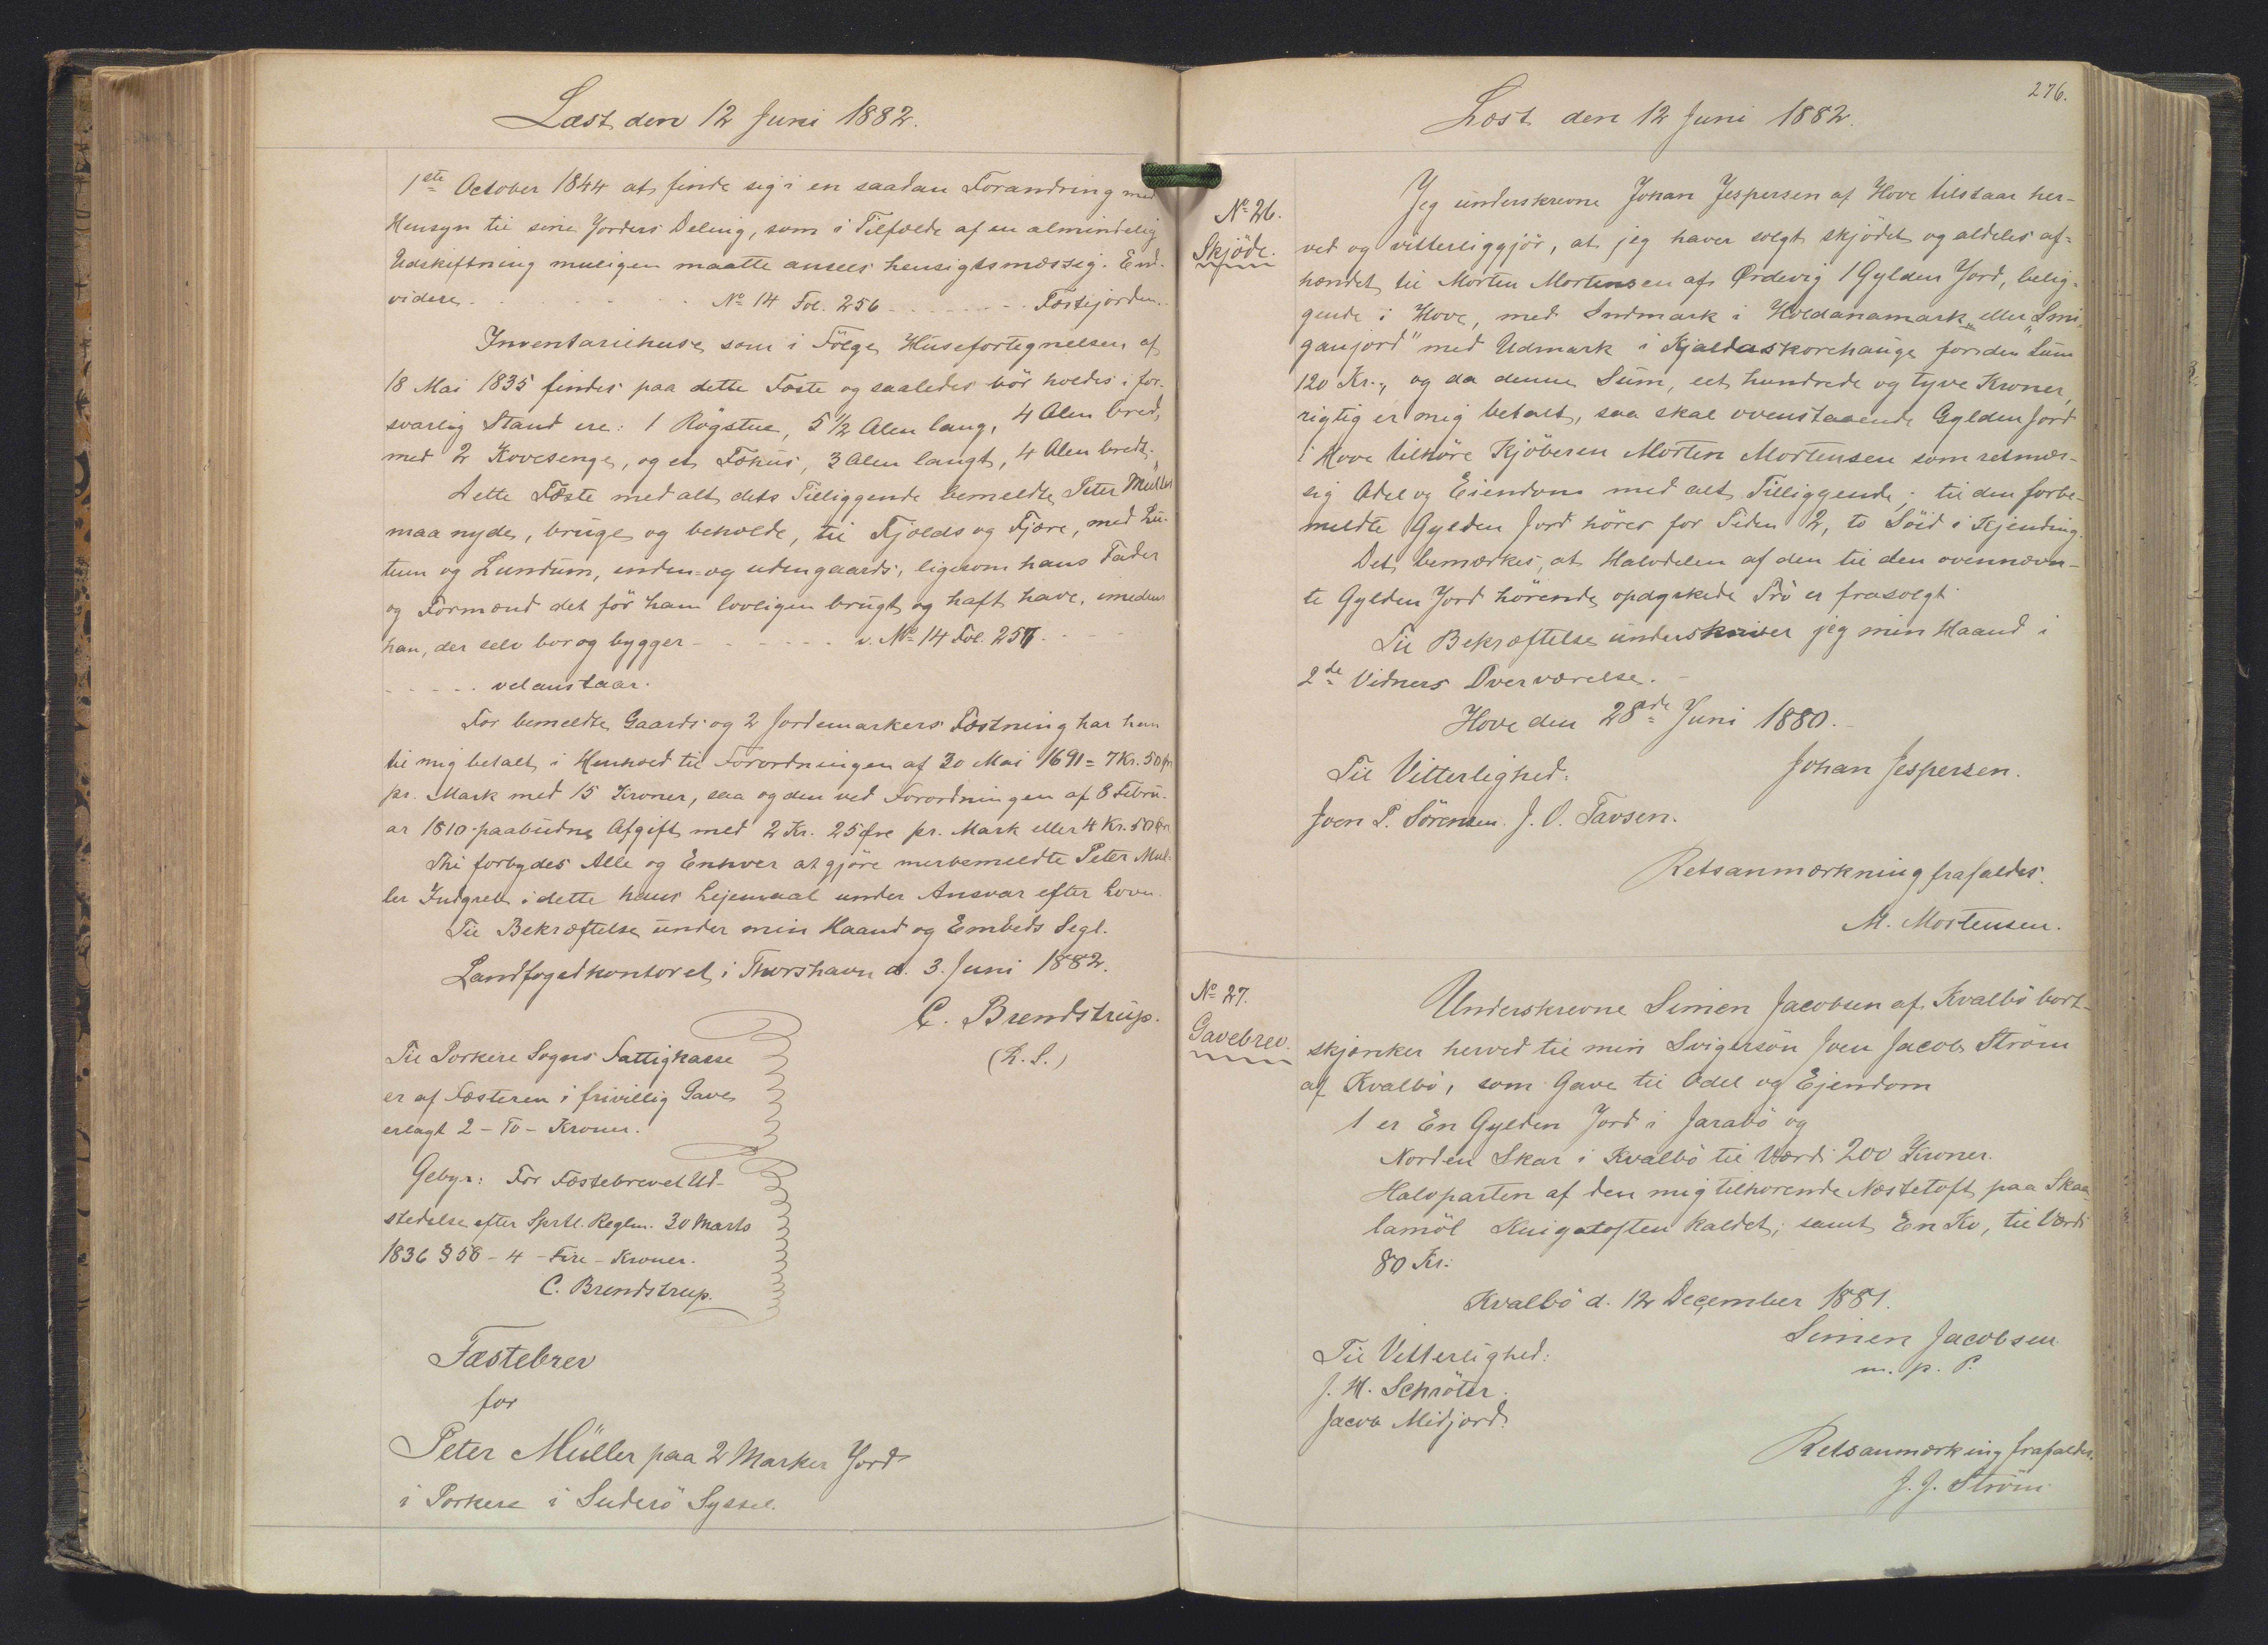 Læst den 12 Juni 1882.
1ste October 1844 at finde sig i en saadan Forandring med
Hensyn til sine Jorders Deling, som i Tilfælde af en almindelig
Udskiftning muligen maatte ansees hensigtsmæssig. End-
videre - - - - - No 14 Fol. 256 - - - - - Fæstejorden.
Inventariehuse som i Følge Husefortegnelsen af
18 Mai 1835 findes paa dette Fæste og saaledes bör holdes i for-
svarlig Stand ere: 1 Rögstue, 5 1/2 Alen lang, 4 Alen bred,
med 2 Kovesenge, og et Fæhus, 3 Alen langt, 4 Alen bredt.
Dette Fæste med alt dets Tilliggende bemeldte Peter Müller
maa nyde, bruge og beholde, til Fjelds og Fjære, med Lu-
tum og Lundum, inden- og udengaards, ligesom hans Fader
og Formænd det för ham lovligen brugt og haft have, imedens
han, der selv bor og bygger - - - - - v. No 14 Fol. 257. - - -
- - - - - vel anstaar.
For bemeldte Gaards og 2 Jordemarkers Fæstning har han
til mig betalt i Henhold til Forordningen af 30 Mai 1691 = 7 Kr. 50 Øre
pr. Mark med 15 Kroner, saa og den ved Forordningen af 8 Febru-
ar 1810 paabudne Afgift med 2 Kr. 25 Øre pr. Mark eller 4 Kr. 50 Øre
Thi forbydes Alle og Enhver at gjöre merbemeldte Peter Mül-
ler Indgreb i dette hans Lejemaal under Ansvar efter Loven.
Til Bekræftelse under min Haand og Embeds Segl.
Landfogedkontoret i Thorshavn d. 3. Juni 1882.
C. Brendstrup.
(L. S.)
Til Porkere Sogns Fattigkasse
er af Fæsteren i frivillig Gave
erlagt 2 - To - Kroner.
Gebyr: For Fæstebrevet Ud-
stedelse efter Sprtl. Reglm. 30 Marts
1836 § 58 - 4 - Fire - Kroner.
C. Brendstrup.
Fæstebrev
for
Peter Müller paa 2 Marker Jord
i Porkere i Suderö Syssel.
276.
Læst den 12 Juni 1882.
No 26.
Skjöde.
Jeg underskrevne Johan Jespersen af Hove tilstaar her-
ved og vitterliggjör, at jeg haver solgt skjödet og aldeles af-
hændet til Morten Mortensen af Ørdevig 1 Gylden Jord, belig-
gende i Hove, med Indmark i Holdanamark eller "Smi-
ganjord" med Udmark i Kjaldaskorehauge for den Sum
120 Kr., og da denne Sum, eet hundrede og tyve Kroner,
rigtig er mig betalt, saa skal ovenstaaende Gylden Jord
i Hove tilhöre Kjöberen Morten Mortensen som retmæs-
sig Odel og Eiendom med alt Tilliggende; til den forbe-
meldte Gylden Jord hörer for Tiden 2, to Söid i Kjending.
Det bemærkes, at Halvdelen af den til den ovennævn-
te Gylden Jord hörende opdyrkede Trö er frasolgt
Til Bekræftelse underskriver jeg min Haand i
2de Vidners Overværelse. -
Hove den 28de Juni 1880. -
Til Vitterlighed: Johan Jespersen.
Joen P. Sörensen. J. O. Tavsen.
Retsanmærkning frafaldes.
M. Mortensen.
No 27.
Gavebrev.
Underskrevne Simen Jacobsen af Kvalbö bort-
skjænker herved til min Svigersön Joen Jacob Ström
af Kvalbö, som Gave til Odel og Ejendom
1 er En Gylden Jord i Jarabö og
Norden Skar i Kvalbö til Værdi 200 Kroner.
Halvparten af den mig tilhørende Næstetoft paa Skaa-
lamöl Knigatoften kaldet; samt En Ko, til Værdi
80 Kr.
Kvalbö d. 12 December 1881.
Simen Jacobsen
m. p. P.
Til Vitterlighed:
J. H. Schröter.
Jacob Midjord.
Retsanmærkning frafaldes.
J. J. Ström.